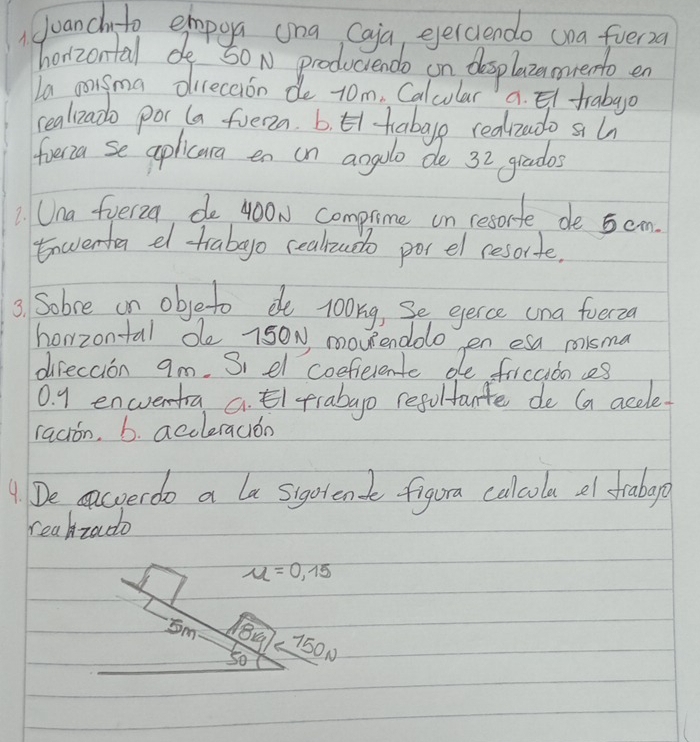 1. Juanchito empoya una Caja, ejerciendo una fuerza
horizontal de 50 N produciendo un desplazamiento en
la misma dirección de 10m. Calcular a. El trabajo
realizado por la fuerza. b. El trabajo realizado si la
fuerza se aplicara en un angulo de 32 grados
2. Una fuerza de 400N comprime un resorte de 5 cm.
Encuentra el trabajo realizado por el resorte.
3. Sobre un objeto de 100kg, Se ejerce una fuerza
horizontal de 150N, moviendolo en esa misma
dirección 9m. Si el coeficiente de fricción es
0.1 encuentra a. El trabajo resultante de la acele-
ración. b. aceleración
4. De acuerdo a la siguiente figura calcula el trabajo
realizado
μ=0,15
5m
8kg
150N
50